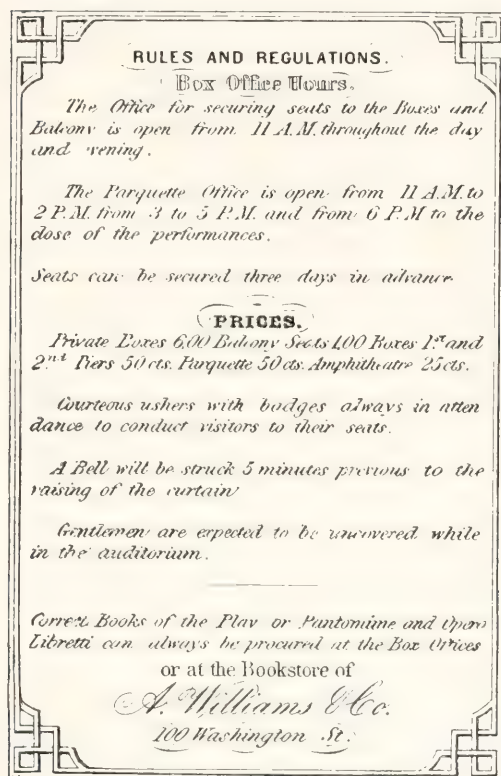 RULES AND REGULATIONS.
Box Office Hours.
The Office for securing seats to the Boxes and
Balcony is open from 11 A.M. throughout the day
and evening.
The Parquette Office is open from 11 A.M. to
2 P.M. from 3 to 5 P.M. and from 6 P.M to the
close of the performances.
Seats can be secured three days in advance
PRICES.
Private Boxes 6,00 Balcony Seats 1,00 Boxes 1st and
2nd Tiers 50 cts. Parquette 50 cts. Amphitheatre 25 cts.
Courteous ushers with badges always in atten
dance to conduct visitors to their seats.
A Bell will be struck 5 minutes previous to the
raising of the curtain
Gentlemen are expected to be uncovered while
in the auditorium.
Correct Books of the Play or Pantomime and Opera
Libretti can always be procured at the Box Offices
or at the Bookstore of
A. Williams & Co.
100 Washington St.